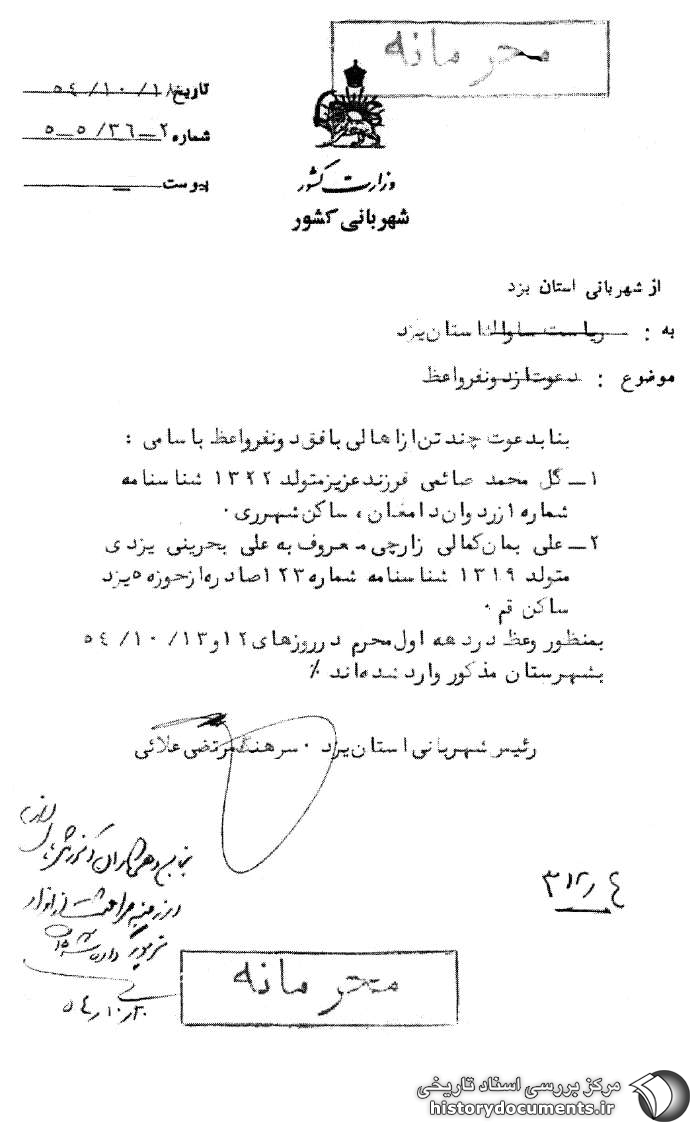 محرمانه
تاریخ ۵۴/۱۰/۱۸
شماره ۲ـ۵/۳۶ـ۵
پیوست ـ
وزارت کشور
شهربانی کشور
از شهربانی استان یزد
به : ریاست ساواک استان یزد
موضوع : دعوت از دو نفر واعظ
بنا بدعوت چند تن از اهالی بافق دو نفر واعظ باسامی :
۱ـ گل محمد صائمی فرزند عزیز متولد ۱۳۲۲ شناسنامه
شماره ۱ زردوان دامغان ، ساکن شهرری ۰
۲ـ علی بمان کمالی زارچی معروف به علی بحرینی یزدی
متولد ۱۳۱۹ شناسنامه شماره ۱۲۳ صادره از حوزه ۵ یزد
ساکن قم ۰
بمنظور وعظ در دهه اول محرم در روزهای ۱۲ و ۱۳/ ۱۰/ ۵۴
بشهرستان مذکور وارد شده‌اند ٪
رئیس شهربانی استان یزد ۰ سرهنگ مرتضی علائی
۵۴/۱۰/۲۰
محرمانه
مرکز بررسی اسناد تاریخی
historydocuments.ir